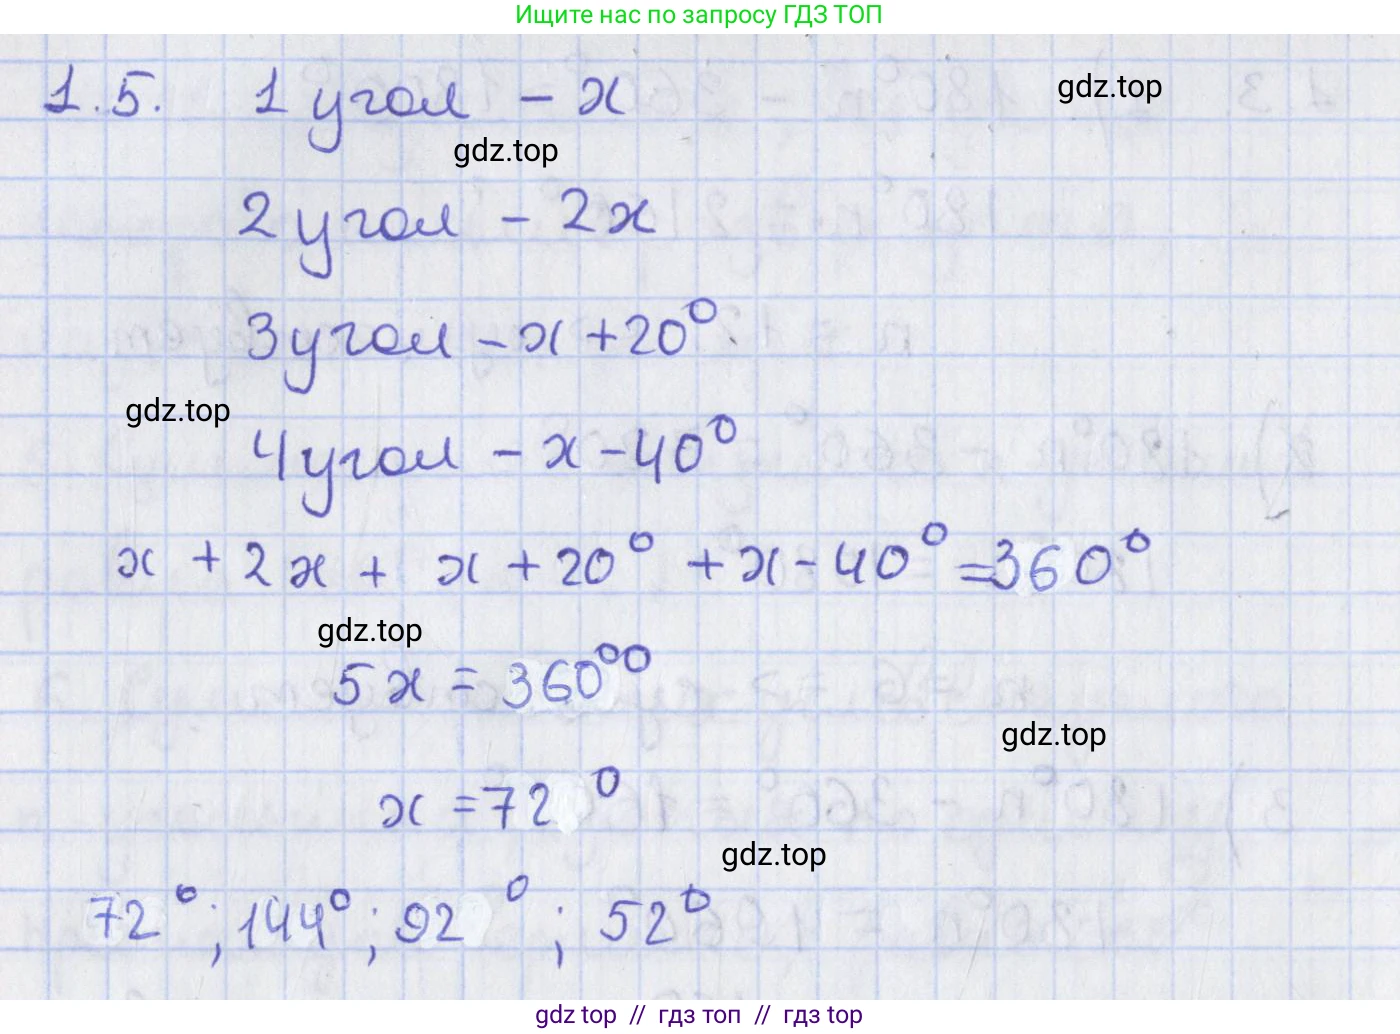 Ищите нас по запросу ГДЗ ТОП
1.5. 1 угол - x
gdz.top
gdz.top
2 угол - 2x
3 угол - x + 20°
gdz.top
4 угол - x - 40°
x + 2x + x + 20° + x - 40° = 360°
gdz.top
5x = 360°°
gdz.top
x = 72°
gdz.top
72°; 144°; 92°; 52°
gdz top // гдз топ // гдз top